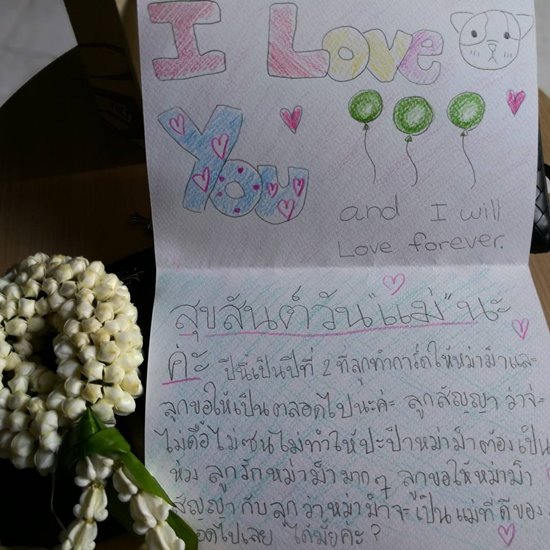 I Love
You
and I will
Love forever.
สุขสันต์วัน"แม่"นะ
ค่ะ ปีนี้เป็นปีที่ 2 ที่ลูกทำการ์ดให้หม่าม๊าและ
ลูกขอให้เป็นตลอดไปนะค่ะ ลูกสัญญาว่าจะ
ไม่ดื้อไม่ซนไม่ทำให้ปะป๊าหม่าม๊าต้องเป็น
ห่วง ลูกรักหม่าม๊ามากๆ ลูกขอให้หม่าม๊า
สัญญากับลูกว่าหม่าม๊าจะเป็นแม่ที่ดีของ
ตลอดไปเลย ได้มั้ยค่ะ?